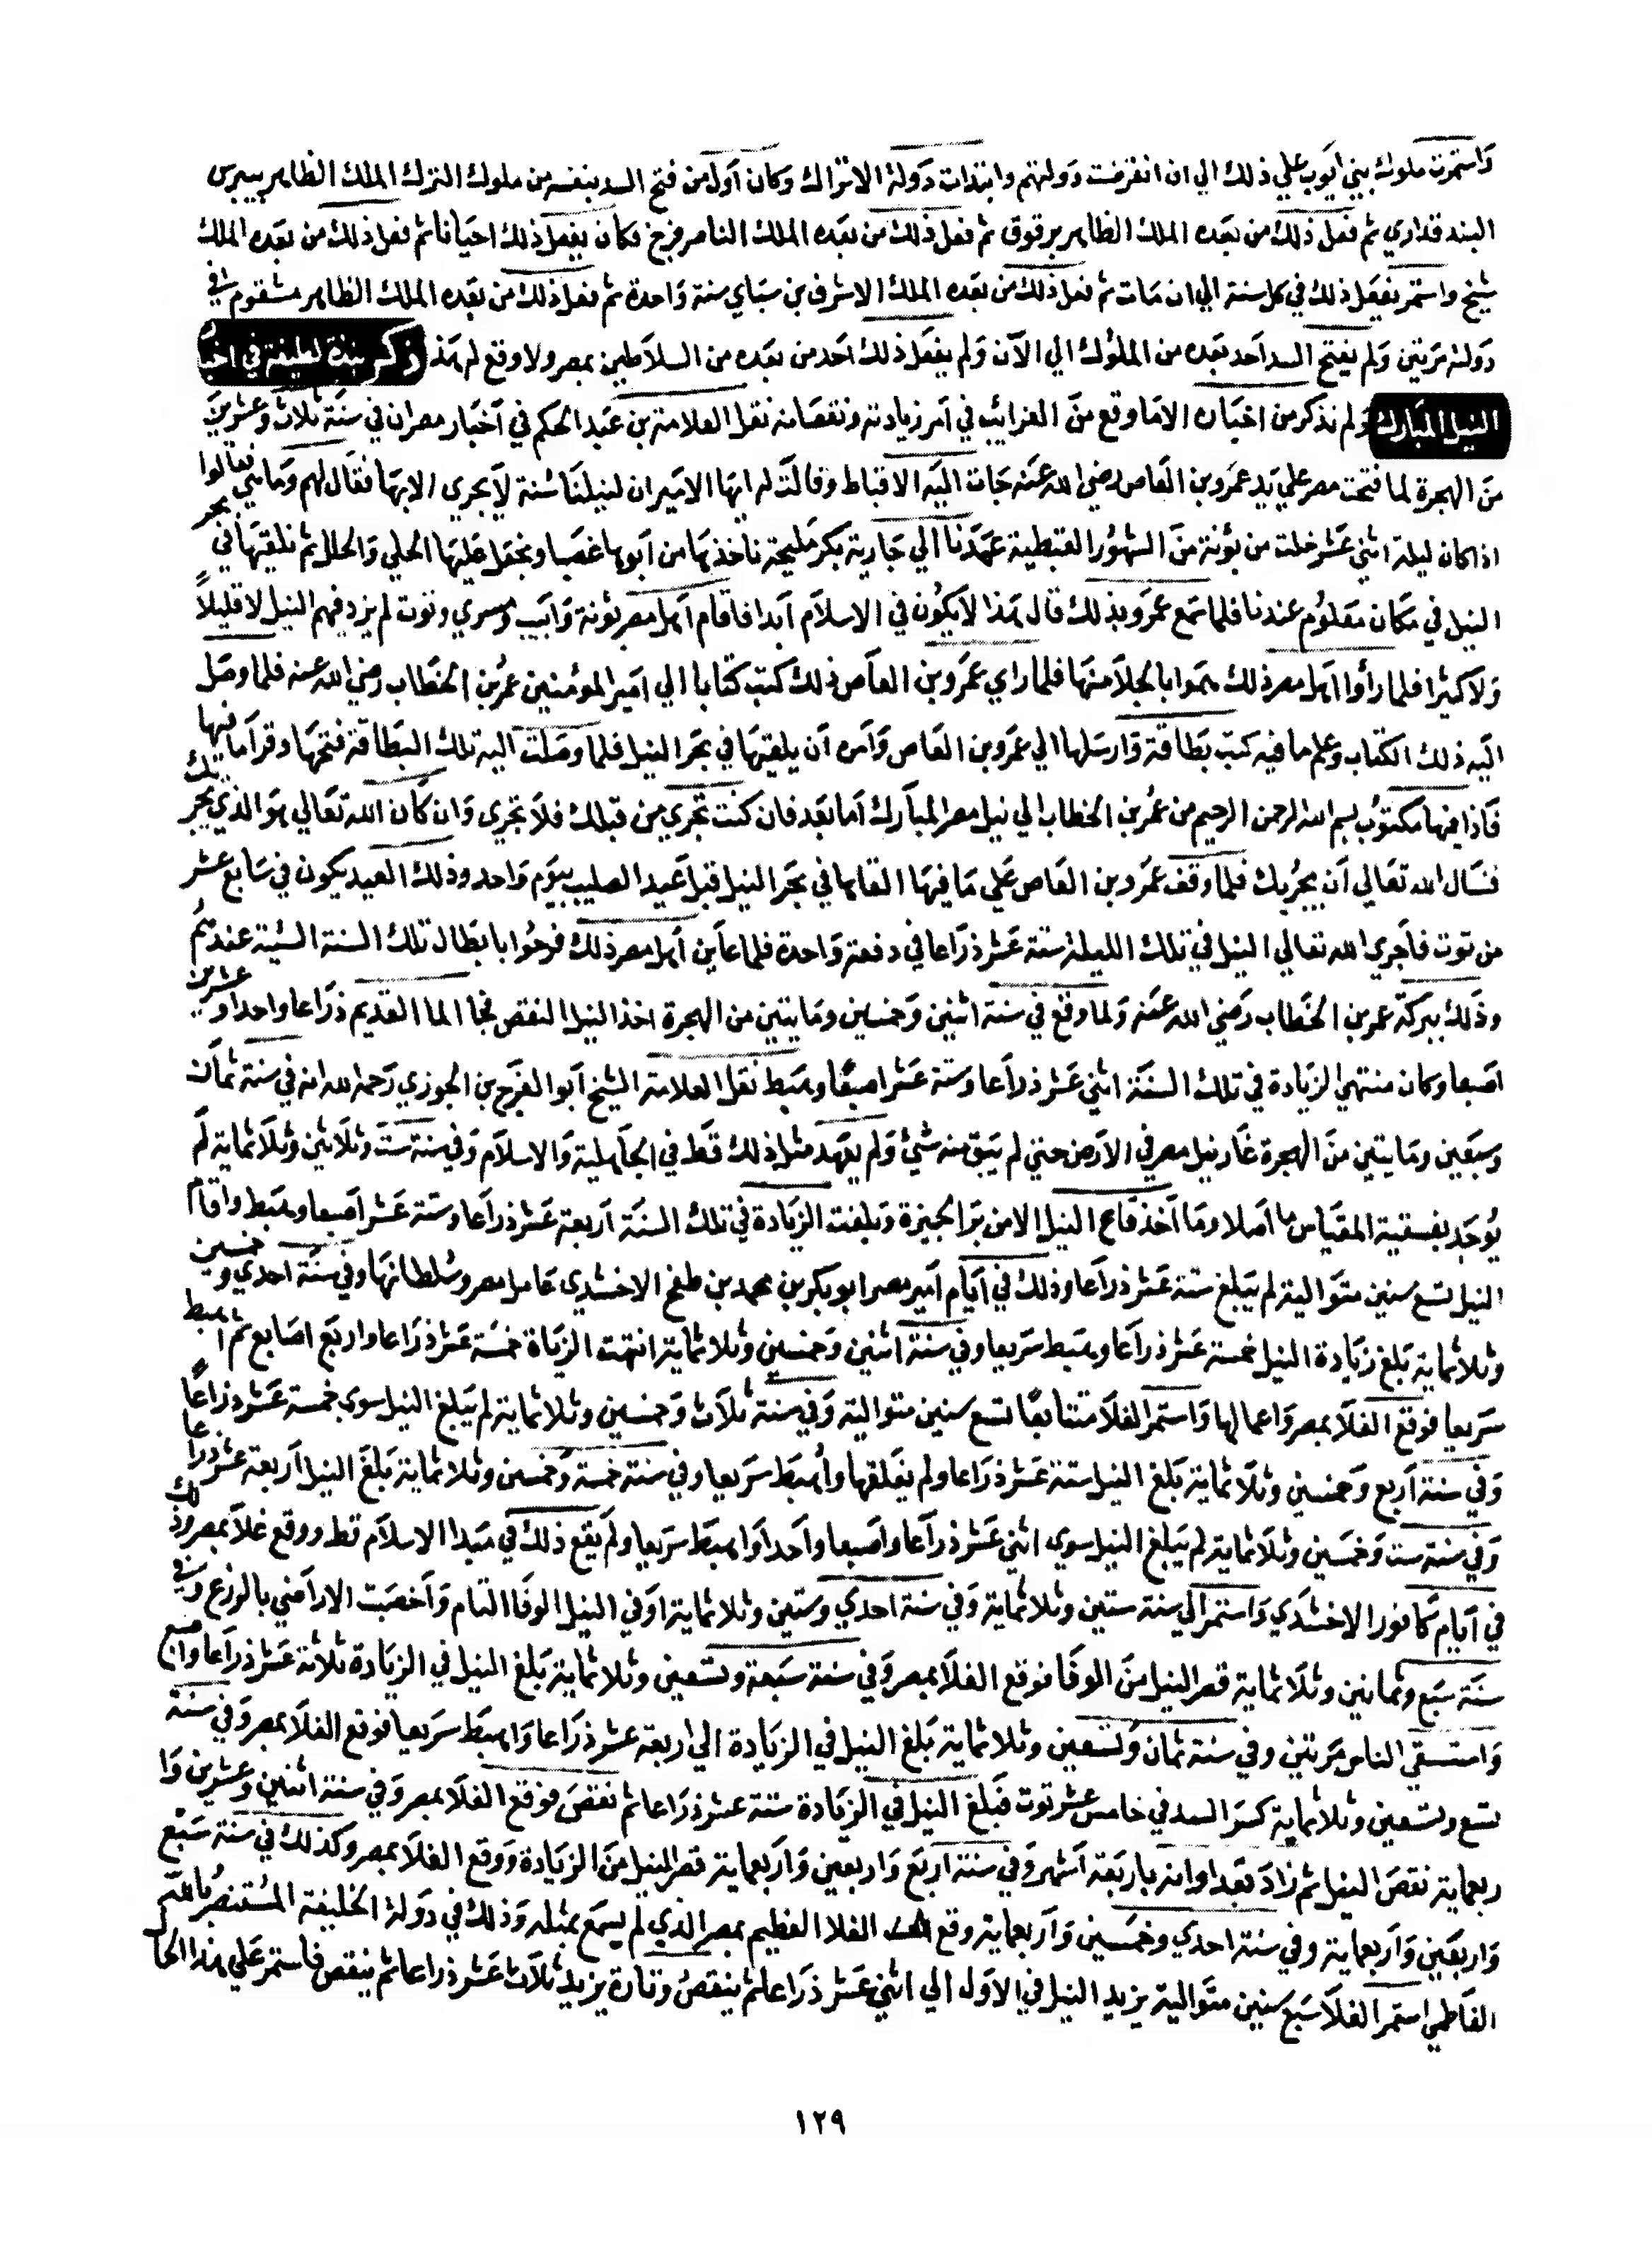 وَاستمرت ملوك بني ايَوب علي ذلك الي ان انقرضت دَولتهم وابتدات دَولة الاتراك وكان اَول من فتح السد بنفسه من ملوك الترك الملك الظاهر بيبرس
البندقداري ثم فعل ذلك من بعَده الملك الظاهر برقوق ثم فعل ذلك من بعَده الملك الناصر فرج فكان يفعل ذلك احيانا ثم فعل ذلك من بعَده الملك
شيخ واستمر يفعَل ذلك في كل سنة الي ان مَات ثم فعل ذلك من بعَده الملك الاشرف بن سَباي سنة وَاحدة ثم فعل ذلك من بعَده الملك الظاهر خشقوم في
دَولته مَرتين وَلم يفتح السد اَحد بعَده من الملوك الي الآن وَلم يفعَل ذلك احَد من بعَده من السلاطين بمصر ولا وقع لهم هَذا ذكر نبذة لطيفة في اخبَا
النيل المبَارك وَلم نذكر من اخبَاره الا مَا وقع منَ الغرايب في اَمر زيادته ونقصَانه نقل العلامة بن عَبد الحكم في اَخبَار مصر ان في سنَة ثلاث وعشرينَ
منَ الهجرة لما فتحت مصر علي يَد عمَرو بن العَاص رضي الله عنَه جَات اليَه الاقباط وقالَت له ايهَا الامير ان لنيلنَا سُنة لاَ يجري الا بهَا فقَال لهم وَما هي فقالوا
اذا كان ليلة اثني عَشر خلت من بؤنة منَ الشهوُر القبطية عمَدنا الي جَارية بكر مَليحة ناخذهَا من اَبويها غصَبا ونجعَل عَليهَا الحلي وَالحلل ثم نلقيهَا في بحر
النيل في مَكان مَعلوُم عندنا فلما سَمع عمَرو بذلك قال هَذا لاَ يكُون في الاسلاَم اَبدا فاقام اَهل مصر بؤنة وَابيَب ومسري وتوت لم يزد فيهم النيل لا قليلاً
وَلا كثيرا فلما رأوا اهَل مصر ذلك همَوا بالجلاَ منهَا فلما راي عمَرو بن العاَص ذلك كتبَ كتَابا الي اَمير المؤمنين عمرُ بن الخطاب رضي الله عنه فلما وصَل
اليَه ذلك الكتاب وعلم ما فيه كتبَ بَطاقة وَارسَلها الي عمَرو بن العَاص وَاَمره اَن يلقيهَا في بحَر النيل فلما وصَلت اليه تلك البَطاقة فتحهَا وقراَ ما فيها
فَاذا فيها مكتوُب بسم الله الرحمن الرحيم من عمُر بن الخطاب الي نيل مصر المبَارك اَما بعَد فان كنَت تجري من قبَلك فلاَ تجري وَان كاَن الله تعَالي هوَ الذي يجريك
فنسَال الله تعَالي اَن يجرُيك فلما وقف عمَرو بن العَاص عَلي مَا فيهَا القاها في بحَر النيل قبل عَيد الصليب بيَوم وَاحد وذلك العيد يكون في سَابع عشر
من توت فاَجري الله تعالي النيل في تلك الليلة ستة عَشر ذرَاعا في دفعة وَاحدة فلما عاَين اَهل مصر ذلك فرحوُا بابطَال تلك السنة السَيئة عندهُم
وذَلك ببركَة عمر بن الخَطاب رَضي الله عنَه وَلما وقع في سنة اثنين وَخمسين ومَايتين من الهجرة اخذ النيل النقص فجَا الما القديم ذرَاعا واحدا وعشرين
اصَبعا وكان منتهي الزيَادة في تلك السنَة اثني عَشر ذراَعا وَستة عَشر اصبعًا وهَبط نقل العلامة الشيخ اَبو الفَرج بن الجوزي رَحمه الله انه في سنة ثماَن
وَسبَعين ومَايتين منَ الهجرة غَار نيل مصر في الاَرض حتي لم يَبق منه شيَ وَلم يعَهد مثل ذلك قَط في الجاَهلية وَالاسلاَم وَفي سَنة سَت وثلاَثين وثلاَثماية لم
يوُجَد بفسقية المقيَاس ما اَصَلا ومَا اَخذ قاَع النيل الا من برَ الجيزة وَبلغت الزيَادة في تلك السنَة اَربعة عَشر ذراَعا وَستة عَشر اصَبعا وهَبط واقاَم
النيل تسَع سنين متوَالية لم يَبلغ ستة عَشر ذراَعا وذلك في ايَام اَمير مصر ابو بكر بن محمد بن طغج الاخشدي عَامل مصر وسُلطانهَا وفي سنَة احدي وخمسين
وثلاثماية بَلغ زيَادة النيل خمسة عَشر ذراَعا وهَبط سَريعا وفي سنة اثنين وَخمسين وثلاثماية انتهت الزيَاة خمسَة عَشر ذرَاعا واربَع اصَابع ثم اهبط
سَريعا فوقع الغلاَ بمصر وَاعمالها وَاستمر الغلاَ متتابعًا تسَع سنين متوالية وَفي سنة ثلاَث وَخمسين وثلاثماية لم يَبلغ النيل سوي خمسة عَشر ذراعًا
وَفي سنَة اَربع وَخمسين وثلاَثماية بَلغ النيل ستة عَشر ذرَاعا ولم يغَلقها واُهبَط سَريعا وفي سنة خمسة وَخمسين وثلاثماية بَلغَ النيل اَربعة عشر ذراعا
وَفي سنة ست وَخمسَين وثلاَثماية لم يَبلغ النيل سوي اثني عَشر ذراَعا واصَبعا واَحدا واهبَط سَريعا ولَم يقَع ذلك في مَبدا الاسلاَم قط ووقع غلاَ بمصر وذلك
في اَيام كَافور الاخشَدي وَاستمر الي سنة ستين وثلاثماية وَفي سنة احدي وستين وثلاثماية اوَفي النيل الوفَا التام وَاَخصَبت الاراَضي بالزرع وفي
سنَة سَبع وثمَانين وثلَاثماية قصر النيل منَ الوفَا فوقع الغلاَ بمصر وَفي سنة سَبعة وتسَعين وثلاثماية بَلغ النيل في الزيَادة ثلاثة عَشر ذراَعا واصبع
وَاستسَقي الناس مَرتين وفي سنة ثمَان وَتسَعين وثلاثماية بَلغ النيل في الزيَادة الي اربعة عشر ذرَاعا وَاهبَط سَريعا فوقع الغلاَ بمصر وَفي سنَة
تسع وتسَعين وثلاثماية كسرَ السد في خامس عشر توت فبَلغ النيل في الزيَادة ستة عشر ذرَاعا ثم نقصَ فوقع الغلاَ بمصر وَفي سنة اثنين وعشرين وَا
ربعماية نقصَ النيل ثم زادَ بعَد اوانه باربَعة اَشهر وَفي سنة اربَع وَاربعين وَاربَعماية قصر النيل منَ الزيَادة ووَقع الغلاَ بمصر وكذلك في سنة سَبْع
وَاربعَين وَاَربعماية وفي سنة احدي وخمسَين وَاَربعماية وقع الغلا العظيم بمصر الذي لم يسمَع بمثله وَذلك في دَولة الخليفة المسُتنصرُ باللّه
الفَاطمي استمر الغلاَ سَبع سنين متوَالية يزيد النيل في الاوَل الي اثني عَشر ذرَاعا ثم ينقصُ وتارة يزيد ثلاَث عَشر ذراعا ثم ينقص فاستمر عَلي هذا الحال
١٢٩